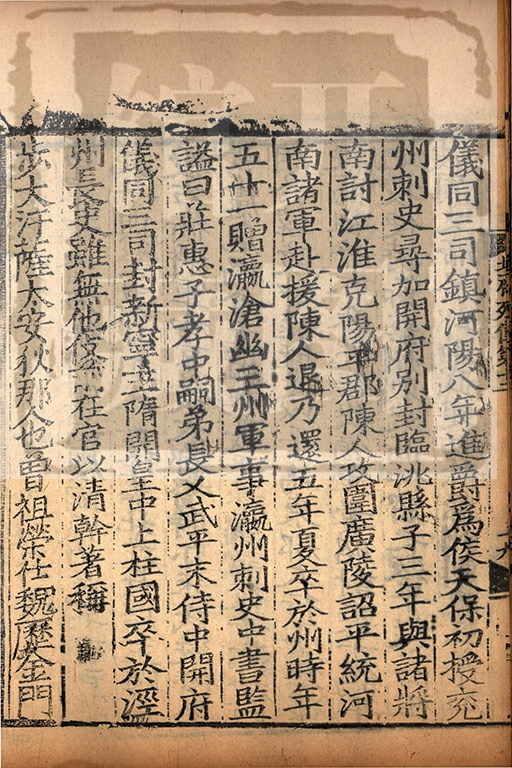 儀同三司鎮河陽八年進爵爲侯天保初授兖
州刺史尋加開府別封臨洮縣子三年與諸將
南討江淮克陽平郡陳人攻圍廣陵詔平統河
南諸軍赴援陳人退乃還五年夏卒於州時年
五十一贈瀛滄幽三州軍事瀛州刺史中書監
謚曰莊惠子孝中嗣弟長乂武平末侍中開府
儀同三司封新寧王隋開皇中上柱國卒於涇
州長史雖無他伎在官以清幹著稱
步大汗薩太安狄那人也曾祖榮仕魏歷金門